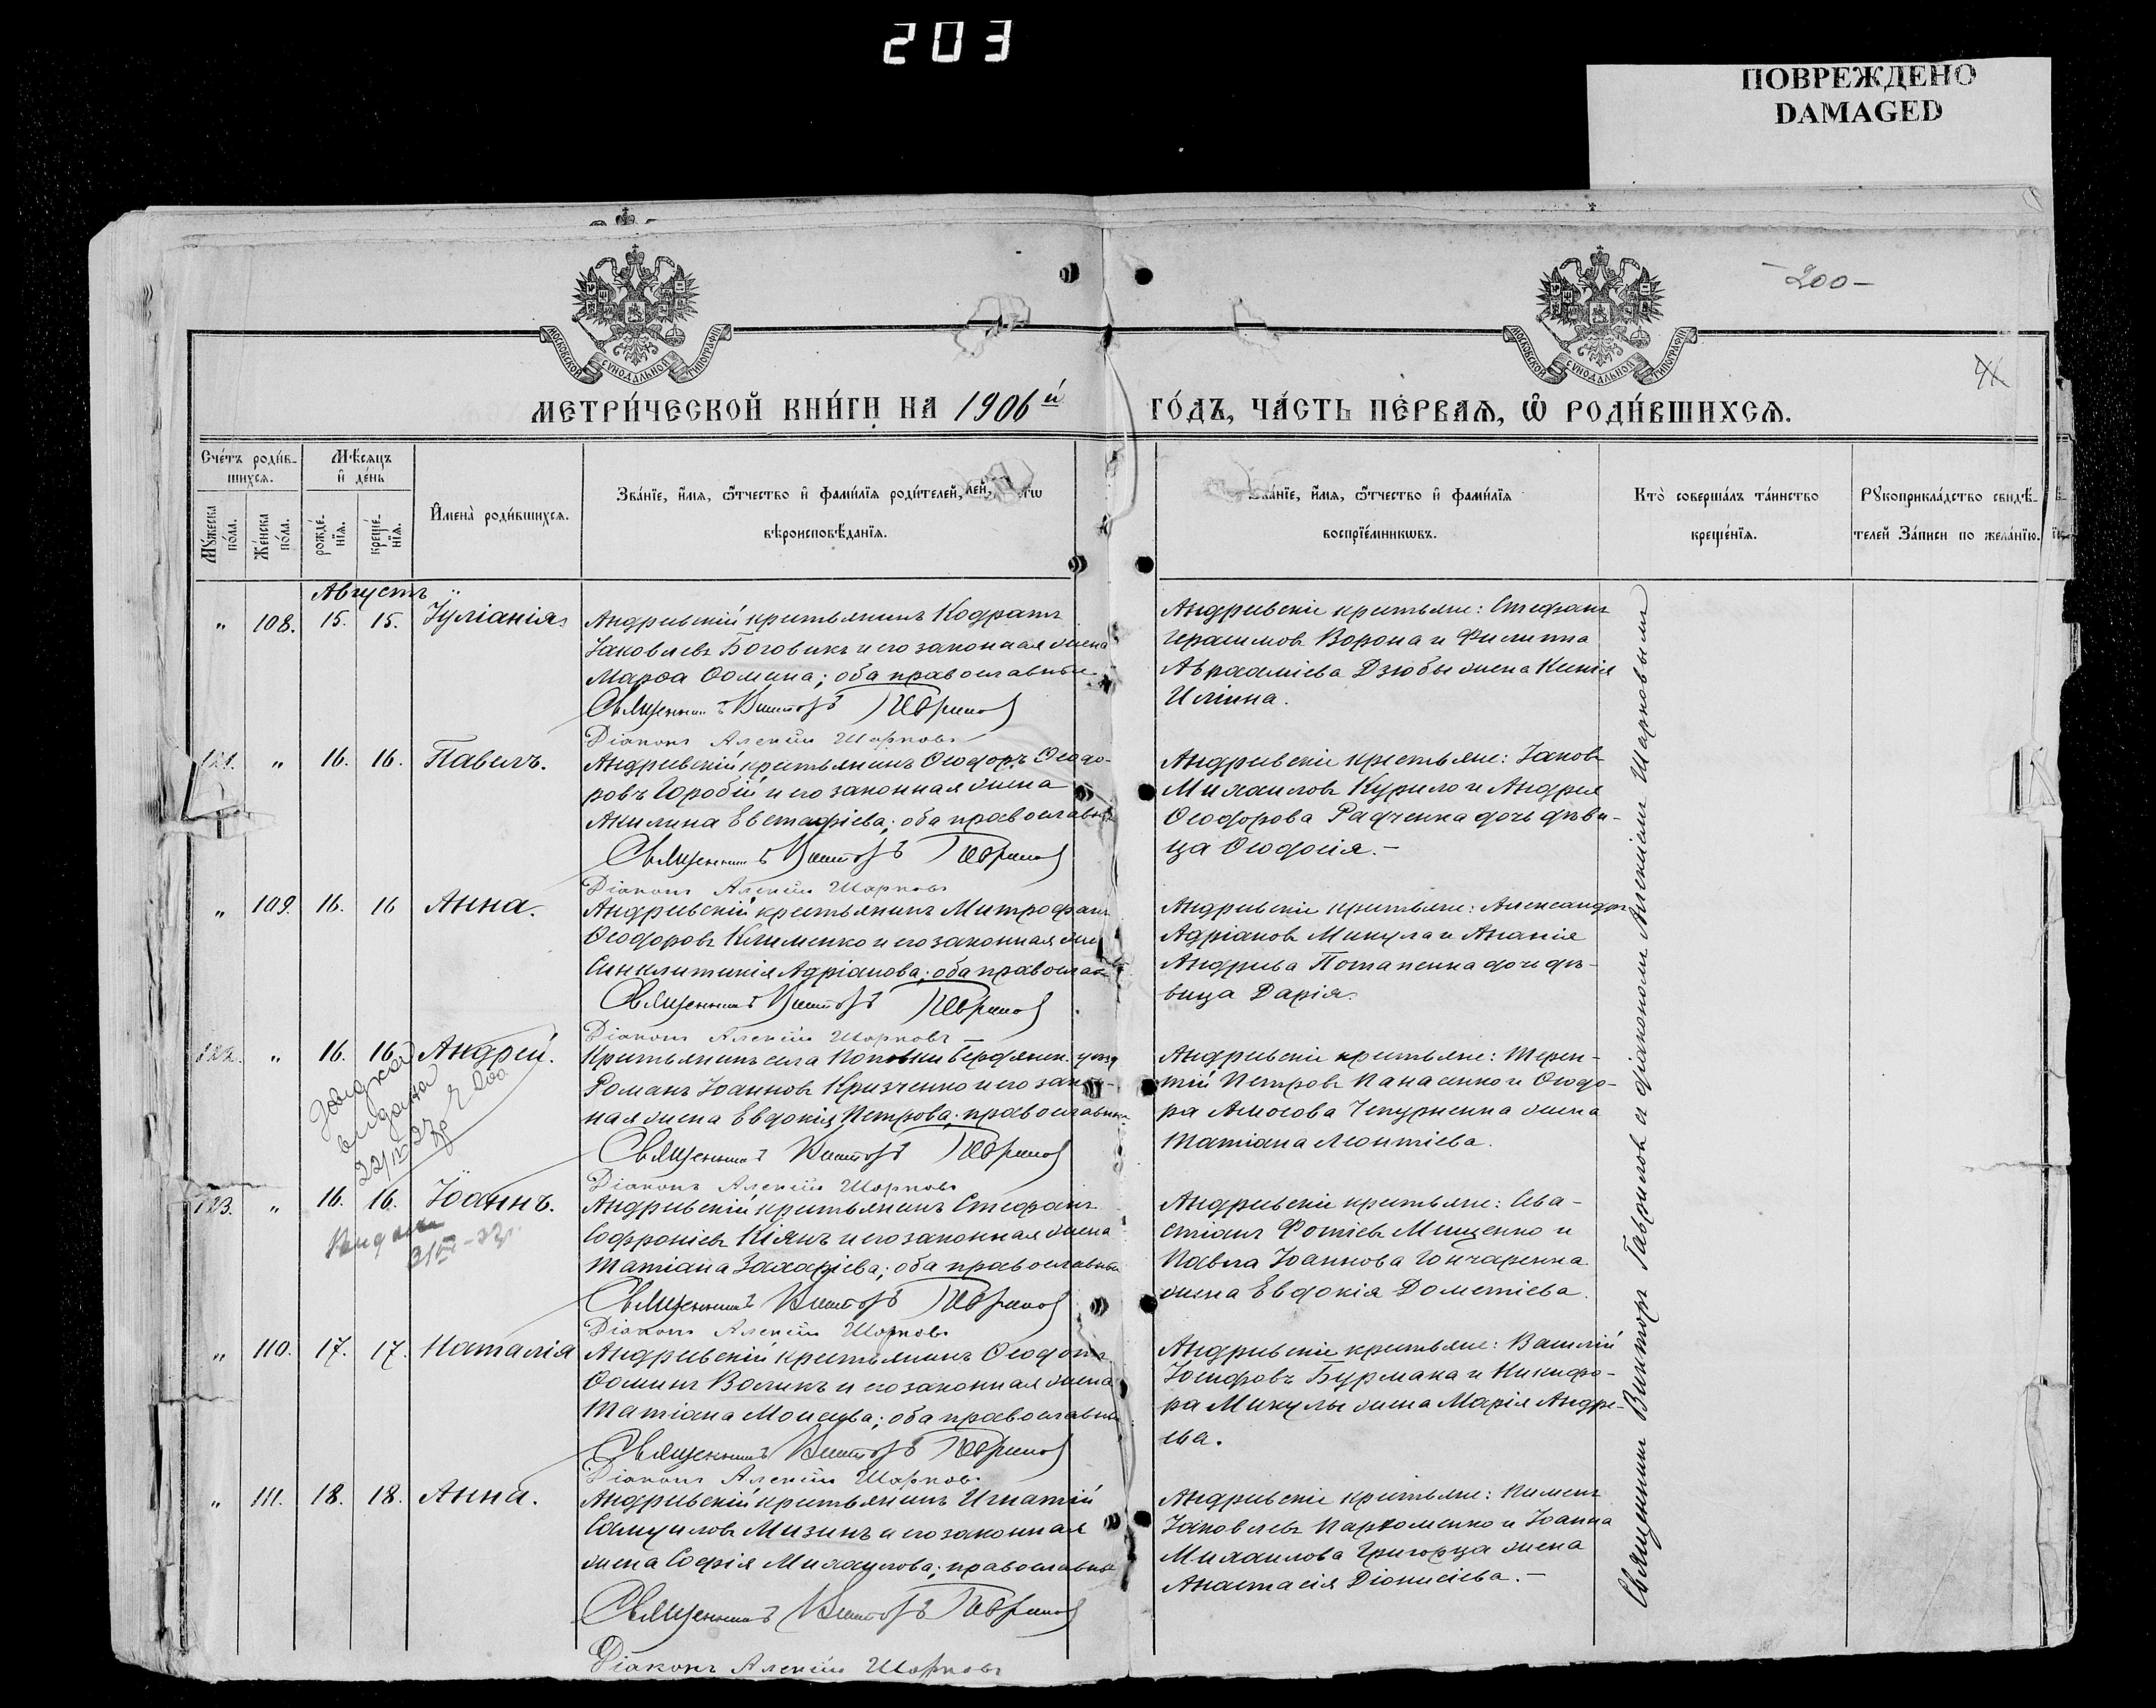 203
ПОВРЕЖДЕНО
DAMAGED
-200-
41
МОСКОВСКОЙ СѴНОДАЛЬНОЙ ТИПОГРАФІИ
МОСКОВСКОЙ СѴНОДАЛЬНОЙ ТИПОГРАФІИ
МЕТРИ́ЧЕСКОЙ КНИ́ГИ НА 1906й ГО́ДЪ, ЧА́СТЬ ПЕ́РВАѦ, Ѡ҆ РОДИ́ВШИХСѦ.
Сче́тъ роди́в-
шихсѧ.
Мꙋ́жеска по́ла.
Же́нска по́ла.
Мѣ́сѧцъ
и҆ де́нь
рожде́-
нїѧ.
креще́-
нїѧ.
И҆мена̀ роди́вшихсѧ.
Зва́нїе, и҆́мѧ, ѻ҆́тчество и҆ фами́лїѧ роди́телей,
вѣроисповѣ́данїѧ.
Зва́нїе, и҆́мѧ, ѻ҆́тчество и҆ фами́лїѧ
воспрїе́мникѡвъ.
Кто̀ соверша́лъ та́инство
креще́нїѧ.
Рꙋкоприкла́дство свидѣ́-
телей За́писи по жела́нїю.
Августъ
" 108. 15. 15. Іуліанія.
Андреевскій крестьянинъ Кодратъ
Іаковлевъ Боговикъ и его законная жена
Марѳа Ѳомина; оба православные
Священникъ Викторъ Гавриловъ
Діаконъ Алексій Шарковъ
Андреевскіе крестьяне: Стефанъ
Герасимовъ Ворона и Филиппа
Авраамiева Дзюбы жена Ксенія
Иліина.
121. " 16. 16. Павелъ.
Андреевскій крестьянинъ Ѳеодоръ Ѳеодо-
ровъ Горобій и его законная жена
Акилина Евстафіева; оба православные
Священникъ Викторъ Гавриловъ
Діаконъ Алексій Шарковъ
Андреевскіе крестьяне: Іаковъ
Михаиловъ Курило и Андрея
Ѳеодорова Радченка дочь дѣви-
ца Ѳеодосія.-
" 109. 16. 16 Анна.
Андреевскій крестьянинъ Митрофанъ
Ѳеодоровъ Клименко и его законная же
Синклитикія Адріанова; оба православ
Священникъ Викторъ Гавриловъ
Діаконъ Алексій Шарковъ
Андреевскіе крестьяне: Александръ
Адріановъ Микула и Ананія
Андреева Потапенка дочь дѣ-
вица Дарія.
122. " 16. 16 Андрей.
Крестьянинъ села Поповки Бердянск. уезд
Романъ Іоанновъ Кризченко и его закон-
ная жена Евдокія Петрова; православные
Священникъ Викторъ Гавриловъ
Діаконъ Алексій Шарковъ
Андреевскіе крестьяне: Терен-
тій Петровъ Панасенко и Ѳеодо-
ра Амосова Чепурненка жена
Татіана Леонтіева.
123. " 16. 16. Іоаннъ.
Видана
Андреевскій крестьянинъ Стефанъ
Софроніевъ Кіянъ и его законная жена
Татіана Захаріева; оба православные
Священникъ Викторъ Гавриловъ
Діаконъ Алексій Шарковъ
Андреевскіе крестьяне: Сева-
стіанъ Фотіевъ Мищенко и
Павла Іоаннова Гончаренка
жена Евдокія Дометіева.
" 110. 17. 17. Наталія
Андреевскій крестьянинъ Ѳеодотъ
Ѳоминъ Воликъ и его законная жена
Татіана Моисеева; оба православные
Священникъ Викторъ Гавриловъ
Діаконъ Алексій Шарковъ
Андреевскіе крестьяне: Василій
Іосифовъ Бурмака и Никифо-
ра Микулы жена Марія Андре-
ева.
" 111. 18. 18. Анна.
Андреевскій крестьянинъ Игнатій
Самуиловъ Мизинъ и его законная
жена Софія Михаилова; православные
Священникъ Викторъ Гавриловъ
Діаконъ Алексій Шарковъ
Андреевскіе крестьяне: Пименъ
Іаковлевъ Пархоменко и Іоанна
Михаилова Григорца жена
Анастасія Діонисіева.-
Священникъ Викторъ Гавриловъ и діакономъ Алексіемъ Шарковымъ